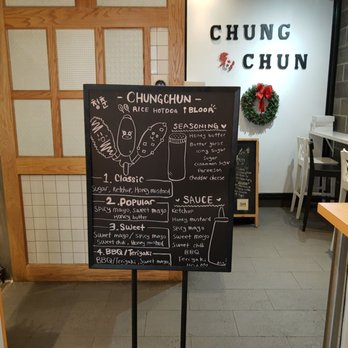 CHUNG
CHUN
청춘
- CHUNGCHUN -
RICE HOTDOG @ BLOOR
SEASONING
Honey butter
Butter garlic
icing Sugar
Sugar
Cinnamon Sugar
Parmesan
cheddar cheese
1. Classic
Sugar, Ketchup, Honey mustard
2. Popular
Spicy mayo, Sweet mayo
Honey butter
3. Sweet
Sweet mayo / Spicy mayo
Sweet chili, Honey mustard
4. BBQ / Teriyaki
BBQ/Teriyaki, Sweet mayo
SAUCE
Ketchup
Honey mustard
Spicy mayo
Sweet mayo
Sweet chili
BBQ
Teriyaki